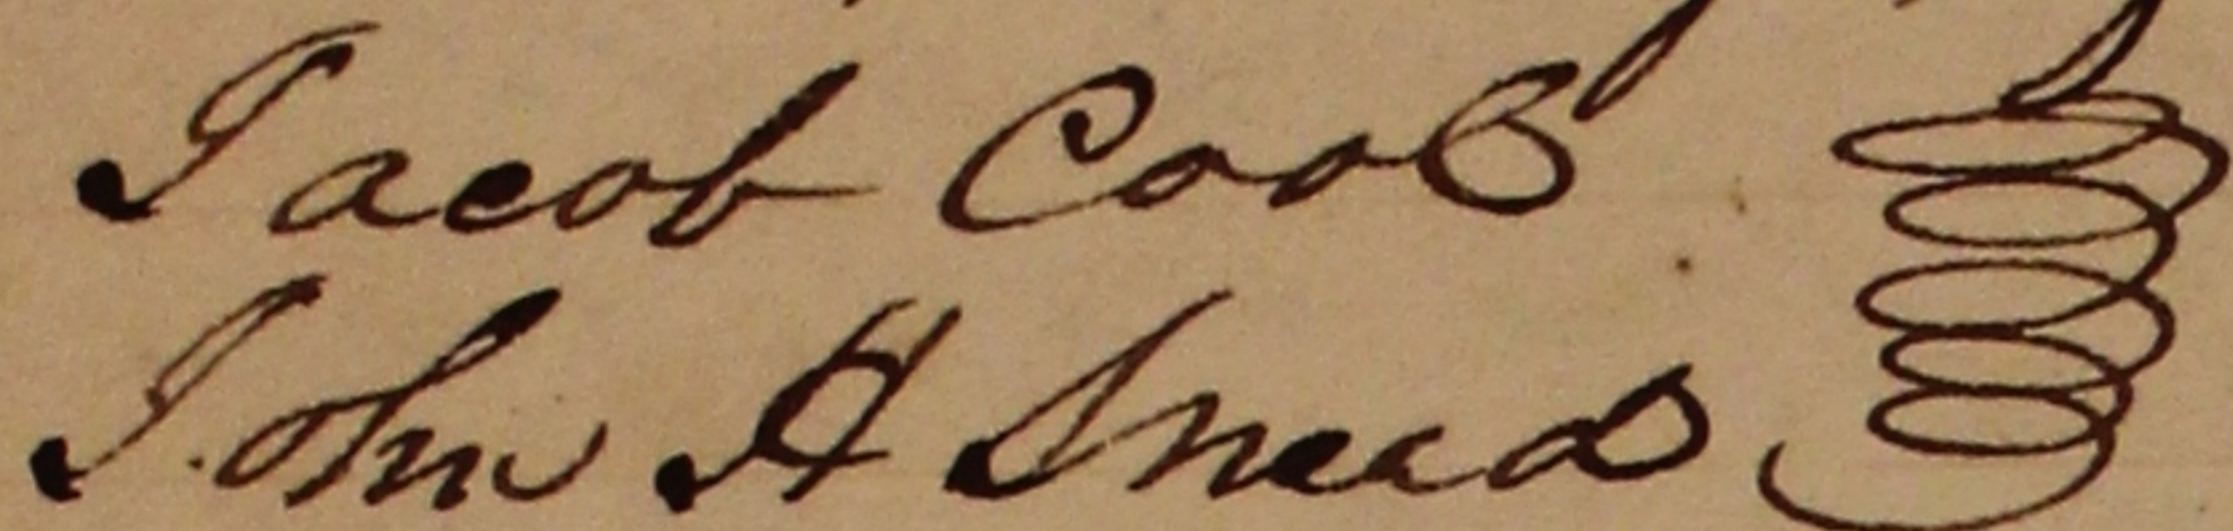 Jacob Cook
John H Snead